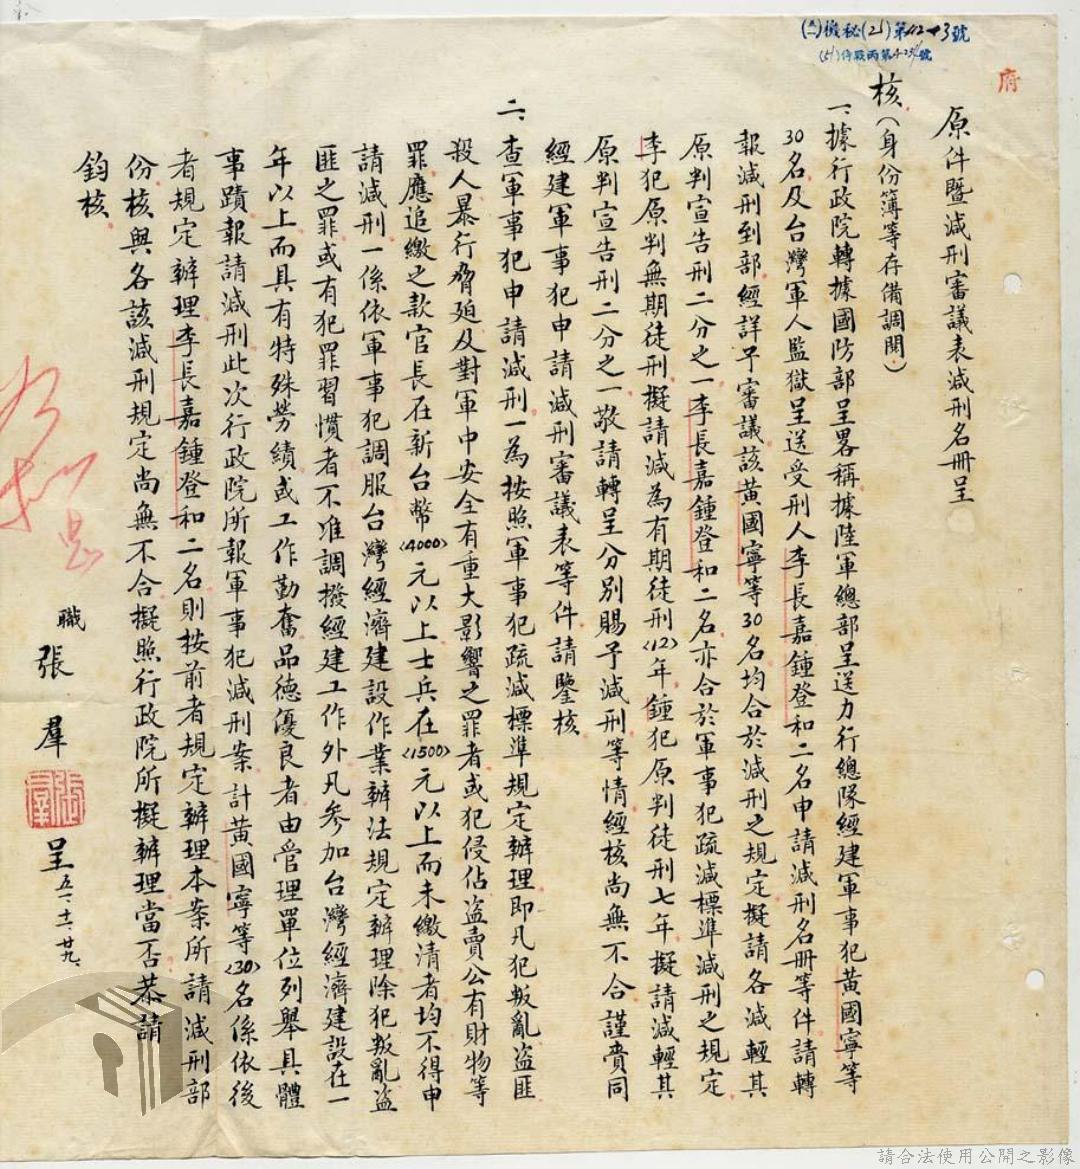 府
原件暨減刑審議表減刑名册呈
核(身份簿等存備調閱)
一、據行政院轉據國防部呈畧稱據陸軍總部呈送力行總隊經建軍事犯黃國寧等
30名及台灣軍人監獄呈送受刑人李長嘉鍾登和二名申請減刑名册等件請轉
報減刑到部經詳予審議該黃國寧等30名均合於減刑之規定擬請各減輕其
原判宣告刑二分之一李長嘉鍾登和二名亦合於軍事犯疏減標準減刑之規定
李犯原判無期徒刑擬請減為有期徒刑(12)年鍾犯原判徒刑七年擬請減輕其
原判宣告刑二分之一敬請轉呈分別賜予減刑等情經核尚無不合謹賫同
經建軍事犯申請減刑審議表等件請鑒核
二、查軍事犯申請減刑一為按照軍事犯疏減標準規定辦理即凡犯叛亂盜匪
殺人暴行脅迫及對軍中安全有重大影響之罪者或犯侵佔盜賣公有財物等
罪應追繳之款官長在新台幣(4000)元以上士兵在(1500)元以上而未繳清者均不得申
請減刑一係依軍事犯調服台灣經濟建設作業辦法規定辦理除犯叛亂盜
匪之罪或有犯罪習慣者不准調撥經建工作外凡參加台灣經濟建設在一
年以上而具有特殊勞績或工作勤奮品德優良者由管理單位列舉具體
事蹟報請減刑此次行政院所報軍事犯減刑案計黃國寧等(30)名係依後
者規定辦理李長嘉鍾登和二名則按前者規定辦理本案所請減刑部
份核與各該減刑規定尚無不合擬照行政院所擬辦理當否恭請
鈞核
職 張羣 呈 五一、十一、廿九、
請合法使用公開之影像